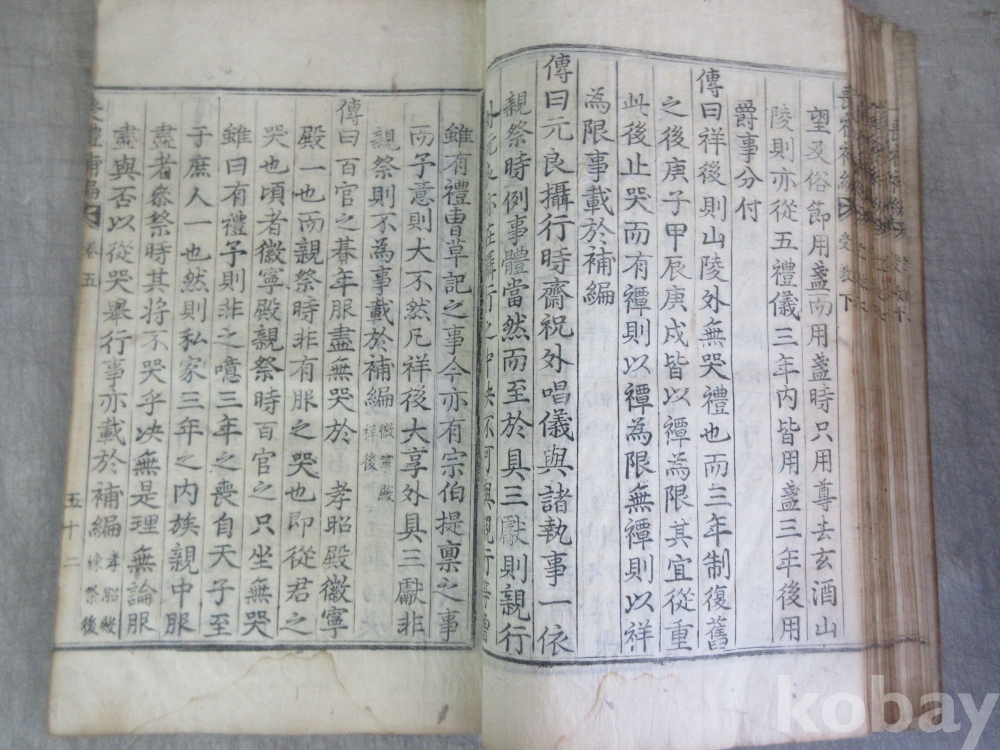 望及俗節用盞而用盞時只用尊去玄酒山
陵則亦從五禮儀三年內皆用盞三年後用
爵事分付
傳曰祥後則山陵外無哭禮也而三年制復舊
之後庚子甲辰庚戌皆以禫為限其宜從重
此後止哭而有禫則以禫為限無禫則以祥
為限事載於補編
傳曰元良攝行時齋祝外唱儀與諸執事一依
親祭時例事體當然而至於具三獻則親行
雖有禮曹草記之事今亦有宗伯提稟之事
而予意則大不然凡祥後大享外具三獻非
親祭則不為事載於補編徽寧殿
祥後
傳曰百官之朞年服盡無哭於 孝昭殿徽寧
殿一也而親祭時非有服之哭也即從君之
哭也頃者徽寧殿親祭時百官之只坐無哭
雖曰有禮予則非之噫三年之喪自天子至
于庶人一也然則私家三年之內族親中服
盡者參祭時其將不哭乎决無是理無論服
盡與否以從哭舉行事亦載於補編孝昭殿
練祭後
補編
卷五
五十二